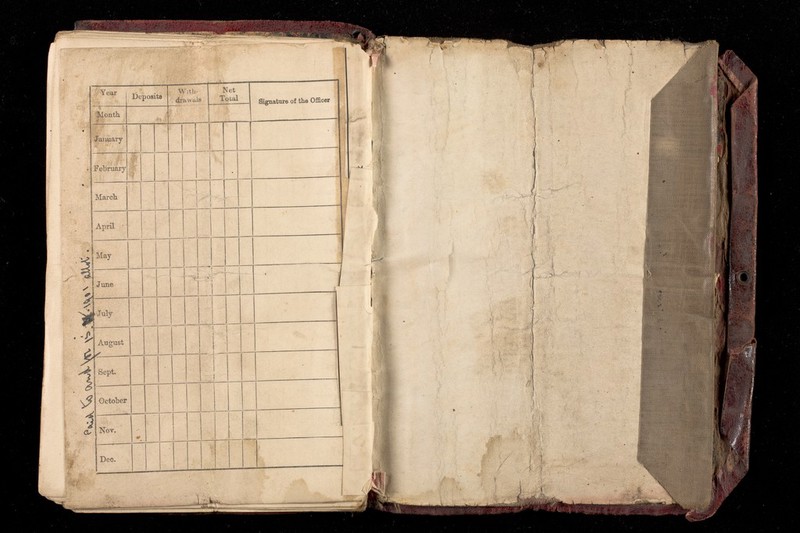 Year
Deposits
With-
drawals
Net
Total
Signature of the Officer
Month
January
February
March
April
May
June
July
August
Sept.
October
Nov.
Dec.
Paid to and for 15. 1901 allot.